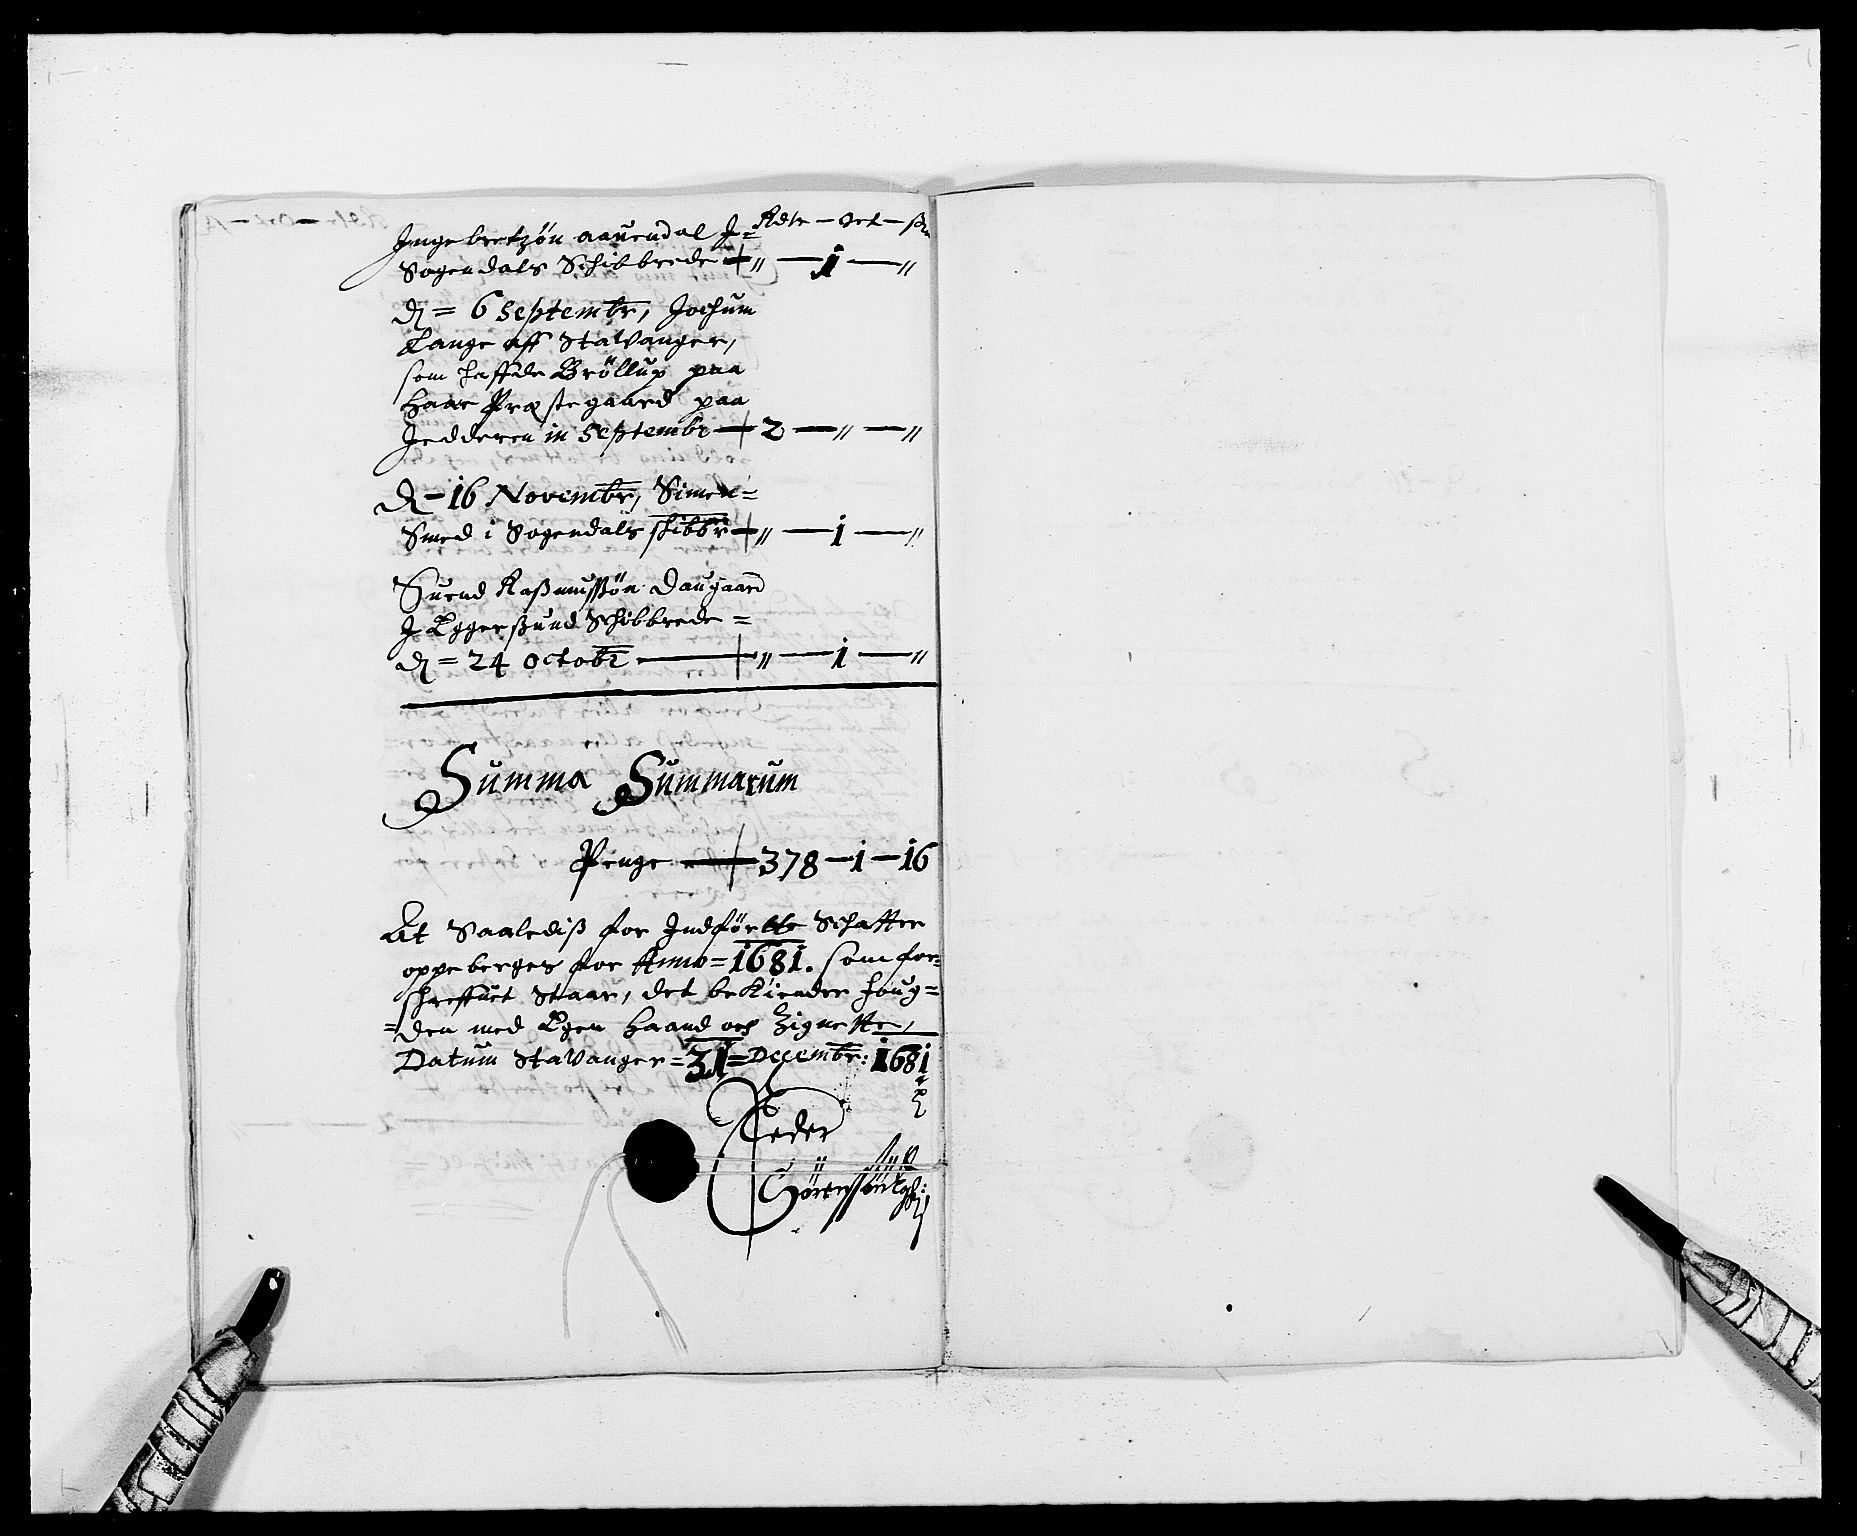 Rdlr — Ort — ß
Ingebretzøn aauendal J=
Sogendals Schibbrede — " — 1 — "
D = 6 Septembr, Jochum
Lange aff Stavanger,
som haffde Brøllup paa
Haae Præstegaard paa
Jedderen in Septembr — 2 — " — "
D - 16 Novembr, Simen=
Smed i Sogendals skibbr — " — 1 — "
Suend Raßmussøn Daugaard
J Eggerßund Schibbrede =
D = 24 Octobr — " — 1 — "
Summa Summarum
Penge — 378 — 1 — 16
At Saalediß for Indførtte Schatter
oppeberges for Anno = 1681. som for=
schreffuet Staar, det bekiender foug=
=den med Egen Haand och Zignette,
Datum Stavanger = 31 = Decembr: 1681
Peder
Sörenssön